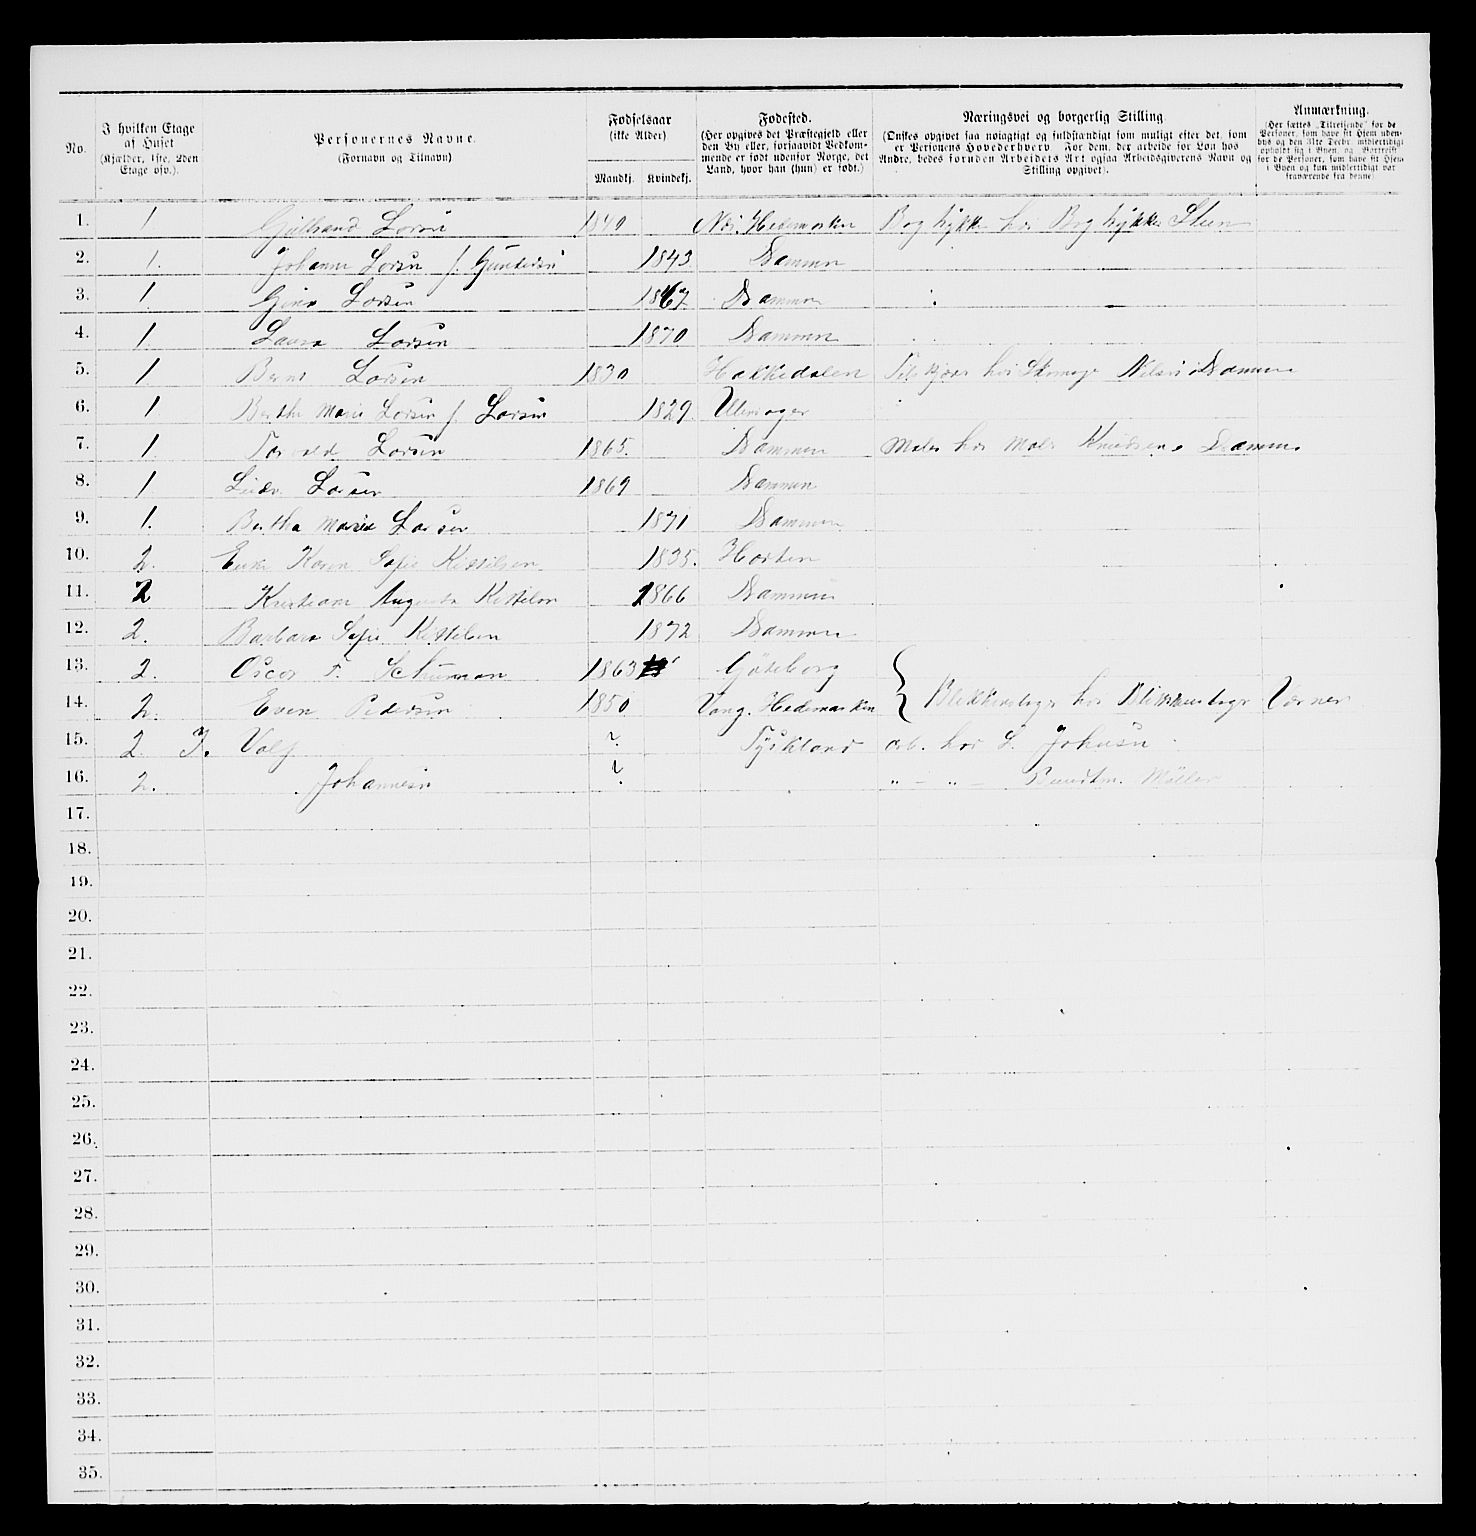 No.
I hvilken Etage af Huset (Kjælder, 1ste, 2den Etage osv.).
Personernes Navne. (Fornavn og Tilnavn)
Fødselsaar (ikke Alder) Mandkj. Kvindekj.
Fødested. (Her opgives det Præstegjeld eller den By eller, forsaavidt Vedkommende er født udenfor Norge, det Land, hvor han (hun) er født.)
Næringsvei og borgerlig Stilling (Ønskes opgivet saa nøiagtigt og fuldstændigt som muligt efter det, som er Personens Hovederhverv For dem, der arbeide for Løn hos Andre, bedes foruden Arbeidets Art ogsaa Arbeidsgiverens Navn og Stilling opgivet).
Anmærkning. (Her sættes „Tilreisende" for de Personer, som have sit Hjem udenbys og den 31te Decbr. midlertidigt opholdt sig i Byen, og „Bortreist" for de Personer, som have sit Hjem i Byen og kun midlertidigt var fraværende fra denne)
1. 1 Gulbrand Larsen 1840 Næs. Hedemarken Bogtrykker hos Bogtrykker Steen
2. 1. Johanne Larsen f. Gundersen 1843 Drammen
3. 1 Gina Larsen 1867 Drammen
4. 1 Laura Larsen 1870 Drammen
5. 1 Bernt Larsen 1830 Hakkedalen hos Nilsen i Drammen
6. 1 Berthe Marie Larsen f. Larsen 1829 Ullensager
7. 1. Torvald Larsen 1865. Drammen Maler hos Maler Knudsen, Drammen
8. 1 Larsen 1869 Drammen
9. 1. Bertha Maria Larsen 1871 Drammen
10. 2. Enke Karen Sofie Kittilsen 1835. Horten
11. 2 Kristiane Augusta Kittilsen 1866 Drammen
12. 2. Barbara Sofie Kittilsen 1872 Drammen
13. 2. Oscar F. Schuman 1863 Göteborg
14. 2. Even Pedersen 1850 Vang. Hedemarken Blikkenslager hos Blikkenslager Værner
15. 2. T. Valf ? Tyskland arb. hos L. Johnsen
16. 2. Johannesen ? „ – „ – Bundtm. Møller
17.
18.
19.
20.
21.
22.
23.
24.
25.
26.
27.
28.
29.
30.
31.
32.
33.
34.
35.